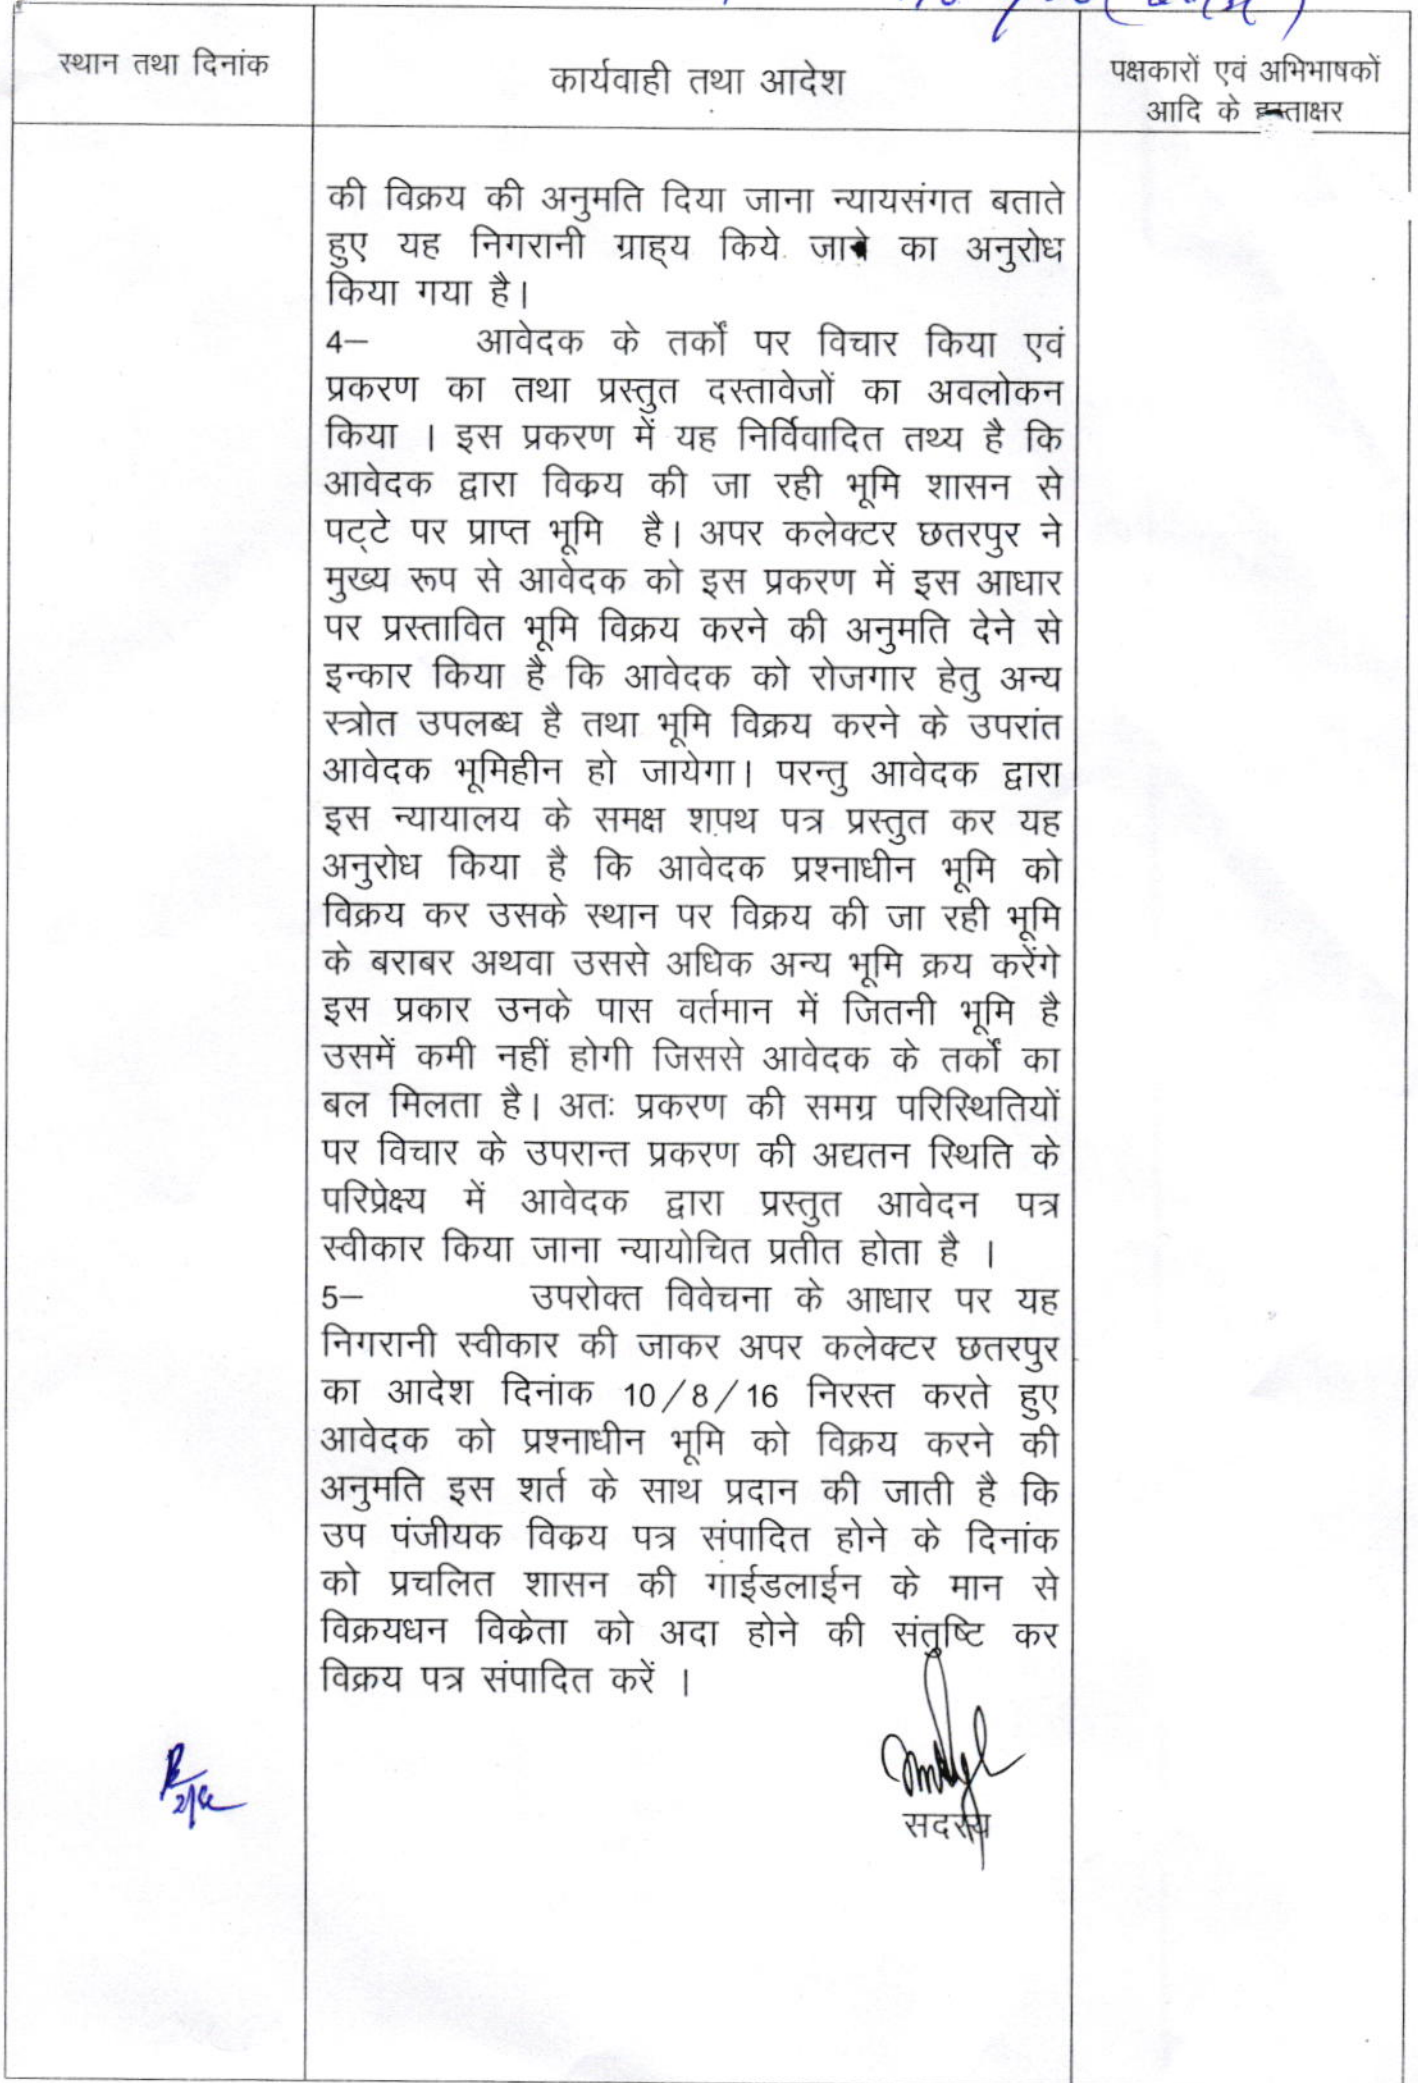 स्थान तथा दिनांक
कार्यवाही तथा आदेश
पक्षकारों एवं अभिभाषकों
आदि के हस्ताक्षर
की विक्रय की अनुमति दिया जाना न्यायसंगत बताते
हुए यह निगरानी ग्राह्य किये जाने का अनुरोध
किया गया है।
4— आवेदक के तर्को पर विचार किया एवं
प्रकरण का तथा प्रस्तुत दस्तावेजों का अवलोकन
किया । इस प्रकरण में यह निर्विवादित तथ्य है कि
आवेदक द्वारा विक्रय की जा रही भूमि शासन से
पट्टे पर प्राप्त भूमि है। अपर कलेक्टर छतरपुर ने
मुख्य रूप से आवेदक को इस प्रकरण में इस आधार
पर प्रस्तावित भूमि विक्रय करने की अनुमति देने से
इन्कार किया है कि आवेदक को रोजगार हेतु अन्य
स्त्रोत उपलब्ध है तथा भूमि विक्रय करने के उपरांत
आवेदक भूमिहीन हो जायेगा। परन्तु आवेदक द्वारा
इस न्यायालय के समक्ष शपथ पत्र प्रस्तुत कर यह
अनुरोध किया है कि आवेदक प्रश्नाधीन भूमि को
विक्रय कर उसके स्थान पर विक्रय की जा रही भूमि
के बराबर अथवा उससे अधिक अन्य भूमि क्रय करेंगे
इस प्रकार उनके पास वर्तमान में जितनी भूमि है
उसमें कमी नहीं होगी जिससे आवेदक के तर्को का
बल मिलता है। अतः प्रकरण की समग्र परिस्थितियों
पर विचार के उपरान्त प्रकरण की अद्यतन स्थिति के
परिप्रेक्ष्य में आवेदक द्वारा प्रस्तुत आवेदन पत्र
स्वीकार किया जाना न्यायोचित प्रतीत होता है ।
5— उपरोक्त विवेचना के आधार पर यह
निगरानी स्वीकार की जाकर अपर कलेक्टर छतरपुर
का आदेश दिनांक 10/8/16 निरस्त करते हुए
आवेदक को प्रश्नाधीन भूमि को विक्रय करने की
अनुमति इस शर्त के साथ प्रदान की जाती है कि
उप पंजीयक विक्रय पत्र संपादित होने के दिनांक
को प्रचलित शासन की गाईडलाईन के मान से
विक्रयधन विक्रेता को अदा होने की संतुष्टि कर
विक्रय पत्र संपादित करें ।
सदस्य